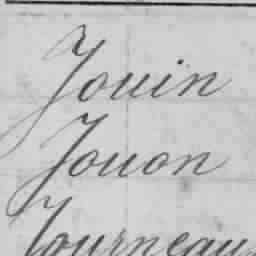 Jouin
Jouon
Journeau